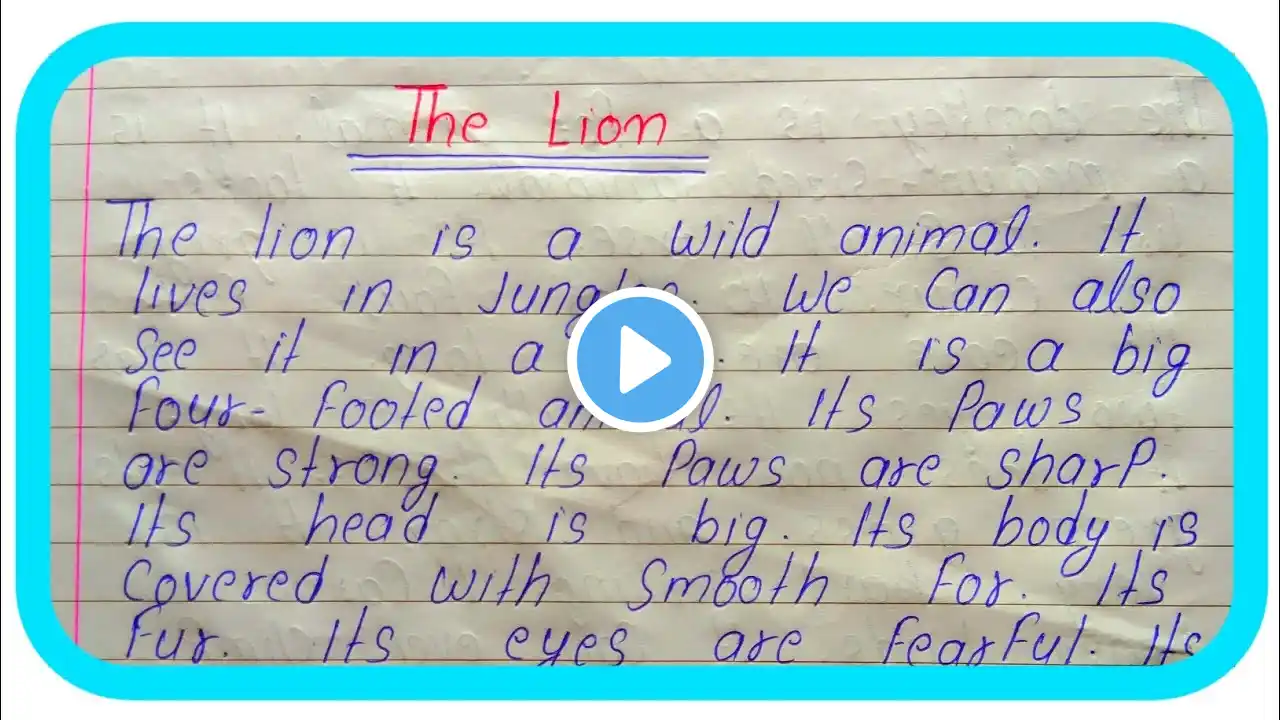 The Lion
The lion is a wild animal. It
lives in Jungles. We Can also
See it in a It is a big
four-footed animal. Its Paws
are strong. Its Paws are sharp.
Its head is big. Its body is
Covered with Smooth For. Its
Fur. Its eyes are Fearful. Its